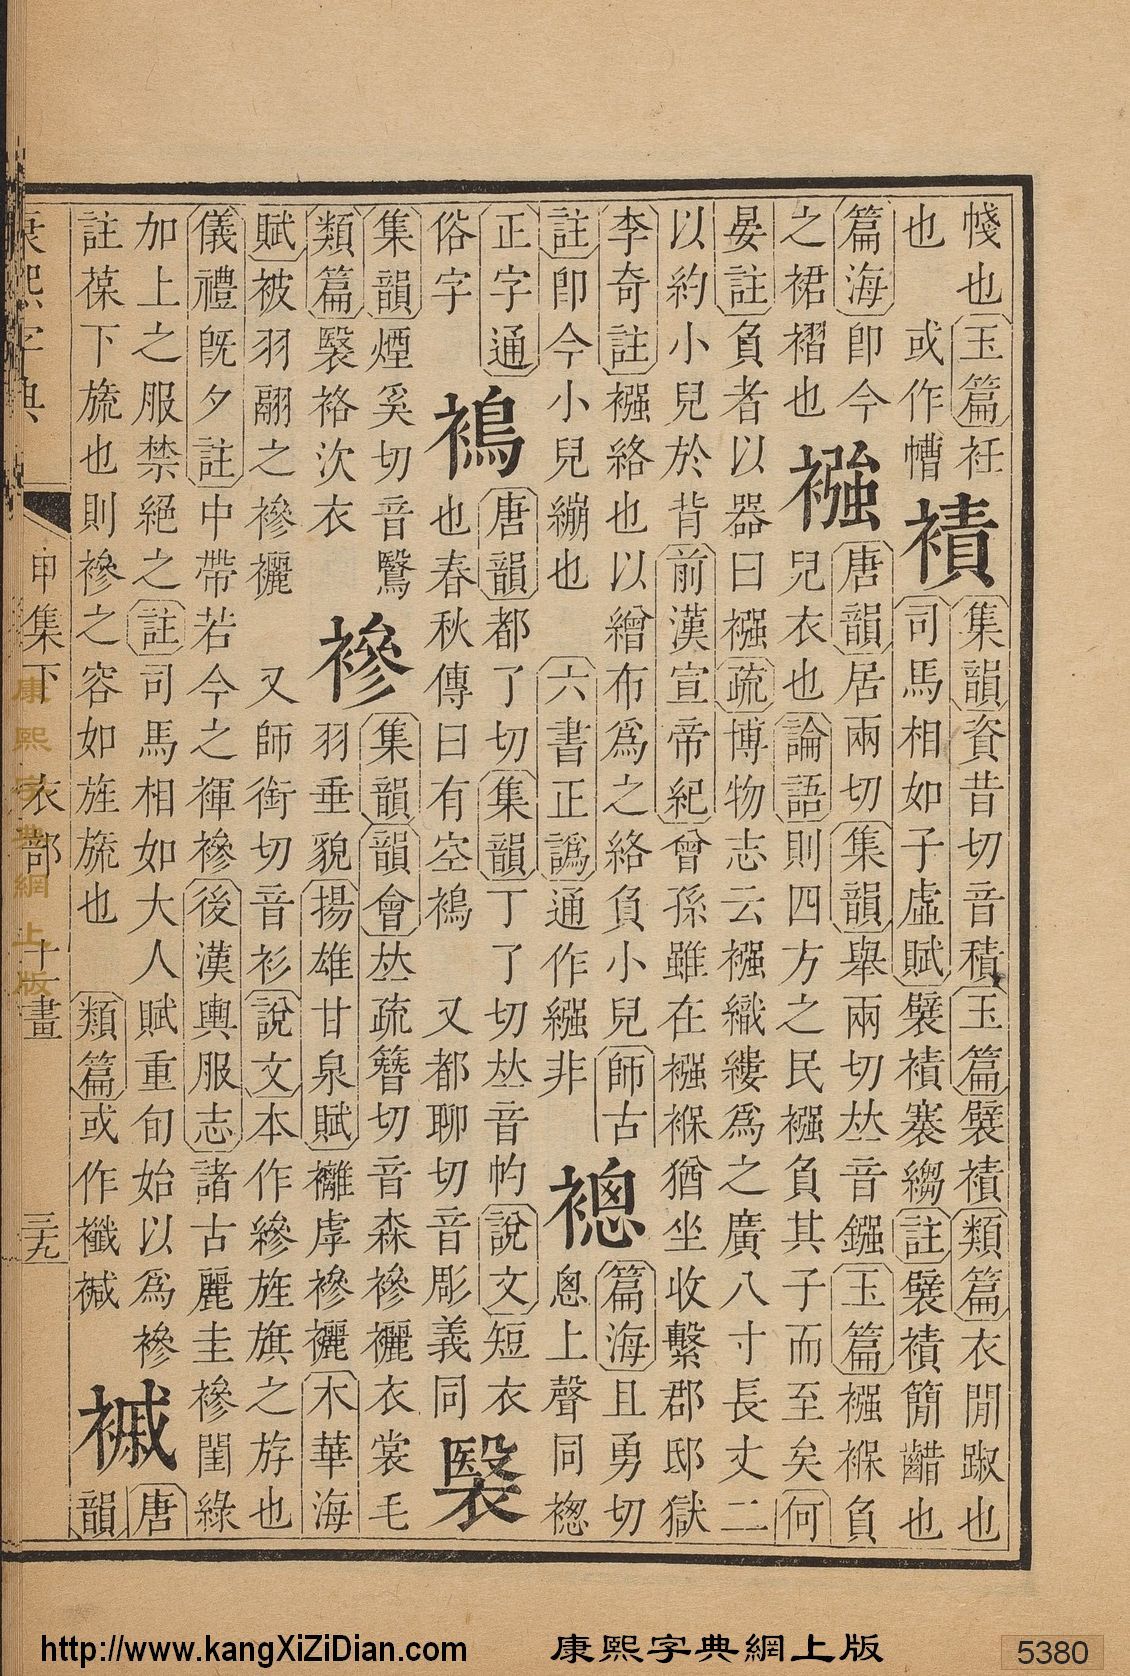 帴也玉篇衽
也　或作
襀
集韻資昔切音積玉篇襞襀類篇衣閒踧也
司馬相如子虛賦襞襀褰縐註襞襀簡齰也
篇海卽今
之裙褶也
襁
唐韻居兩切集韻舉兩切𠀤音鏹玉篇襁褓負
兒衣也論語則四方之民襁負其子而至矣何
晏註負者以器曰襁疏博物志云襁織縷爲之廣八寸長丈二
以約小兒於背前漢宣帝紀曾孫雖在襁褓猶坐收繫郡邸獄
李奇註襁絡也以繒布爲之絡負小兒師古
註卽今小兒繃也　六書正譌通作繈非
篇海且勇切
悤上聲同
正字通
俗字
䙚
唐韻都了切集韻丁了切𠀤音說文短衣
也春秋傳曰有空䙚　又都聊切音彫義同
集韻煙奚切音鷖
類篇袼次衣
襂
集韻韻會𠀤疏簪切音森襂襹衣裳毛
羽垂貌揚雄甘泉賦虖襂襹木華海
賦被羽翮之襂襹　又師銜切音衫說文本作縿旌旗之斿也
儀禮旣夕註中帶若今之褌襂後漢輿服志諸古麗圭襂閨綠
加上之服禁絕之註司馬相如大人賦重旬始以爲襂
註葆下旒也則襂之容如旌旒也　類篇或作襳
䙘
唐
韻
康熙字典　申集下　衣部　十一畫　三九
康熙字典網上版
http://www.kangXiZiDian.com　康熙字典網上版　5380